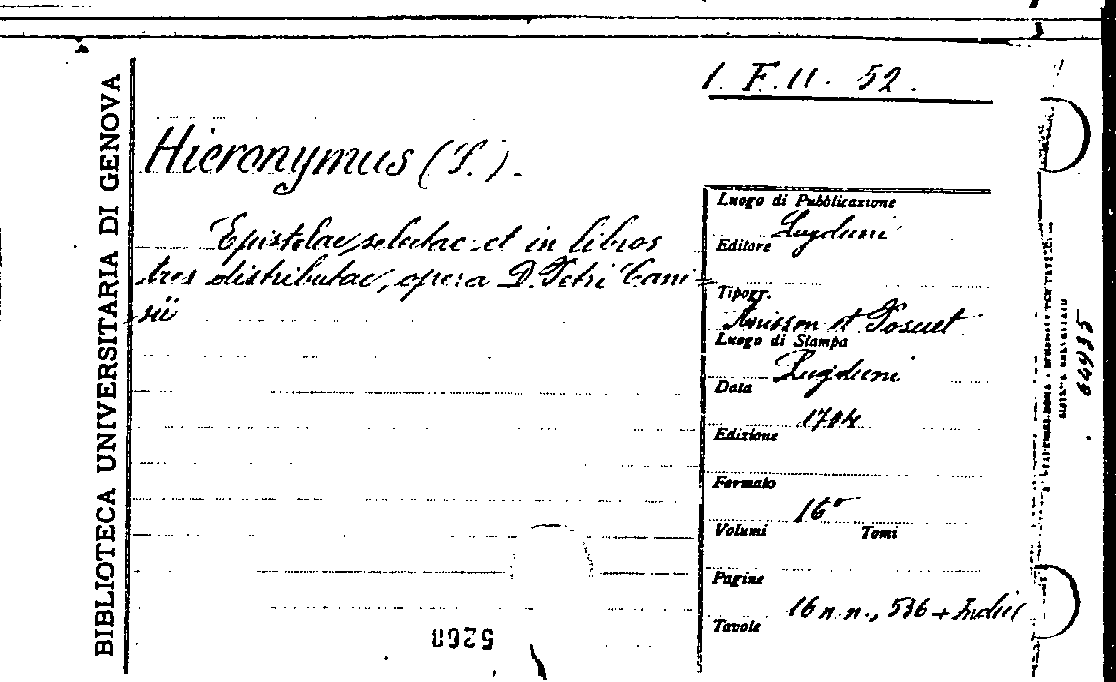 1. F. 11. 52.
BIBLIOTECA UNIVERSITARIA DI GENOVA
Hieronymus (S.).
Epistolae selectae et in libros
tres distributae, opera D. Petri Cani-
sii
Luogo di Pubblicazione
Lugduni
Editore
Tipogr.
Anisson et Posuel
Luogo di Stampa
Lugduni
Data
1704
Edizione
Formato
16°
Volumi Tomi
Pagine
16 n.n., 536 + Indic
Tavole
5260
64935